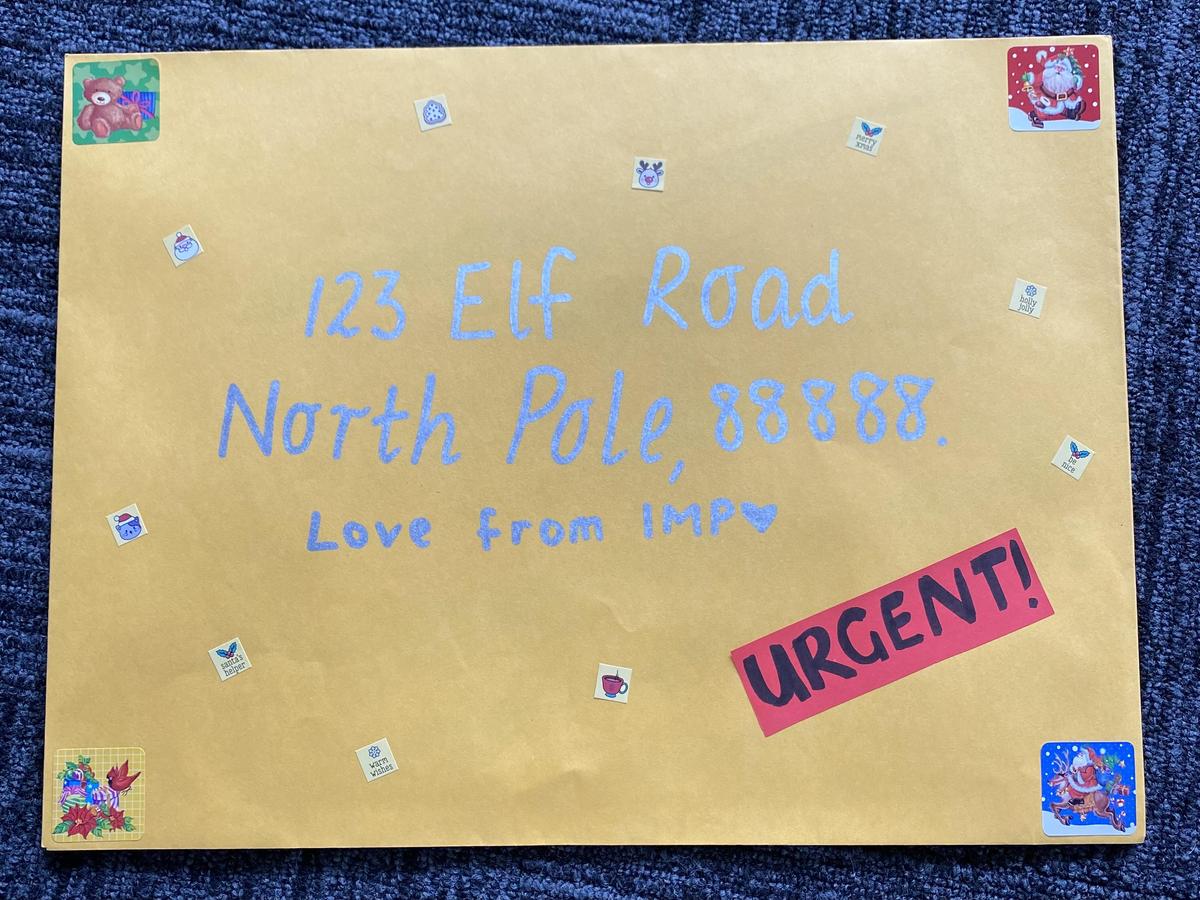 merry
xmas
123 Elf Road
holly
jolly
North Pole, 88888.
be
nice
Love from IMP♥
URGENT!
santa's
helper
warm
wishes